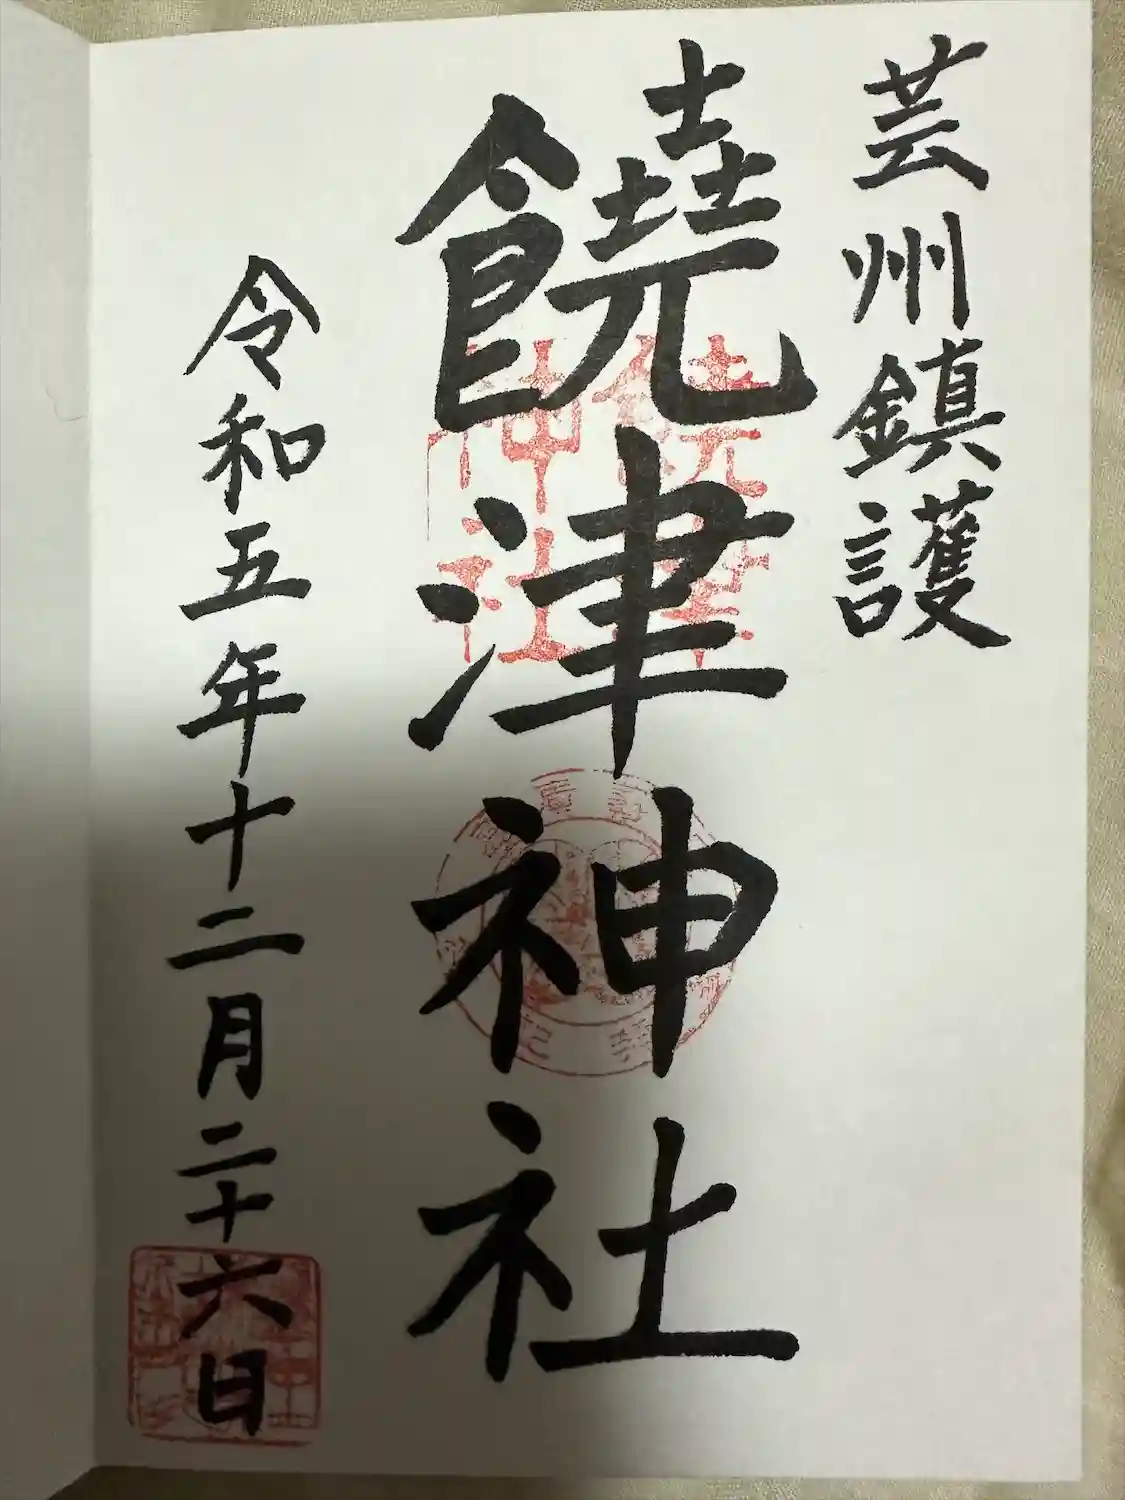 芸州鎮護
饒津神社
令和五年十二月二十六日